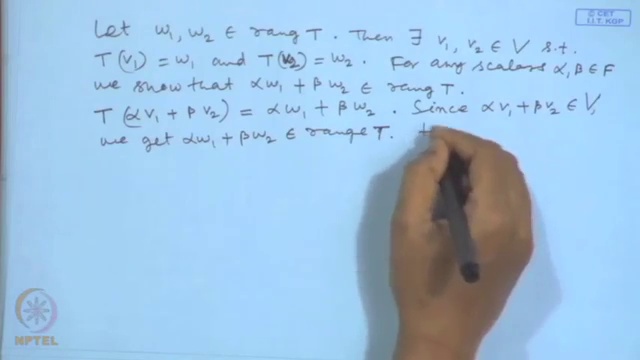 © CET
I.I.T. KGP
Let w₁, w₂ ∈ rang T. Then ∃ v₁, v₂ ∈ V s.t.
T(v₁) = w₁ and T(v₂) = w₂. For any scalars α, β ∈ F
we show that αw₁ + βw₂ ∈ rang T.
T(αv₁ + βv₂) = αw₁ + βw₂. Since αv₁ + βv₂ ∈ V,
we get αw₁ + βw₂ ∈ range T.
NPTEL